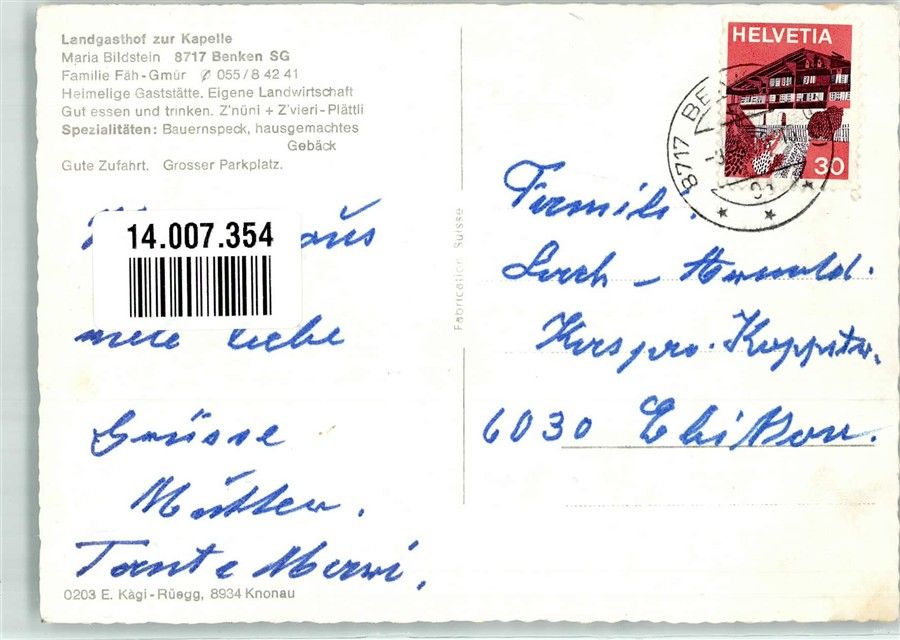 Landgasthof zur Kapelle
Maria Bildstein 8717 Benken SG
Familie Fäh-Gmür ✆ 055/8 42 41
Heimelige Gaststätte. Eigene Landwirtschaft
Gut essen und trinken. Z'nüni + Z'vieri-Plättli
Spezialitäten: Bauernspeck, hausgemachtes
Gebäck
Gute Zufahrt. Grosser Parkplatz.
14.007.354
aus
liebe
Grüsse
Mutter.
Tante
0203 E. Kägi-Rüegg, 8934 Knonau
Fabrication Suisse
HELVETIA
30
8717 BE
Familie
Arnold.
6030 Ebikon.